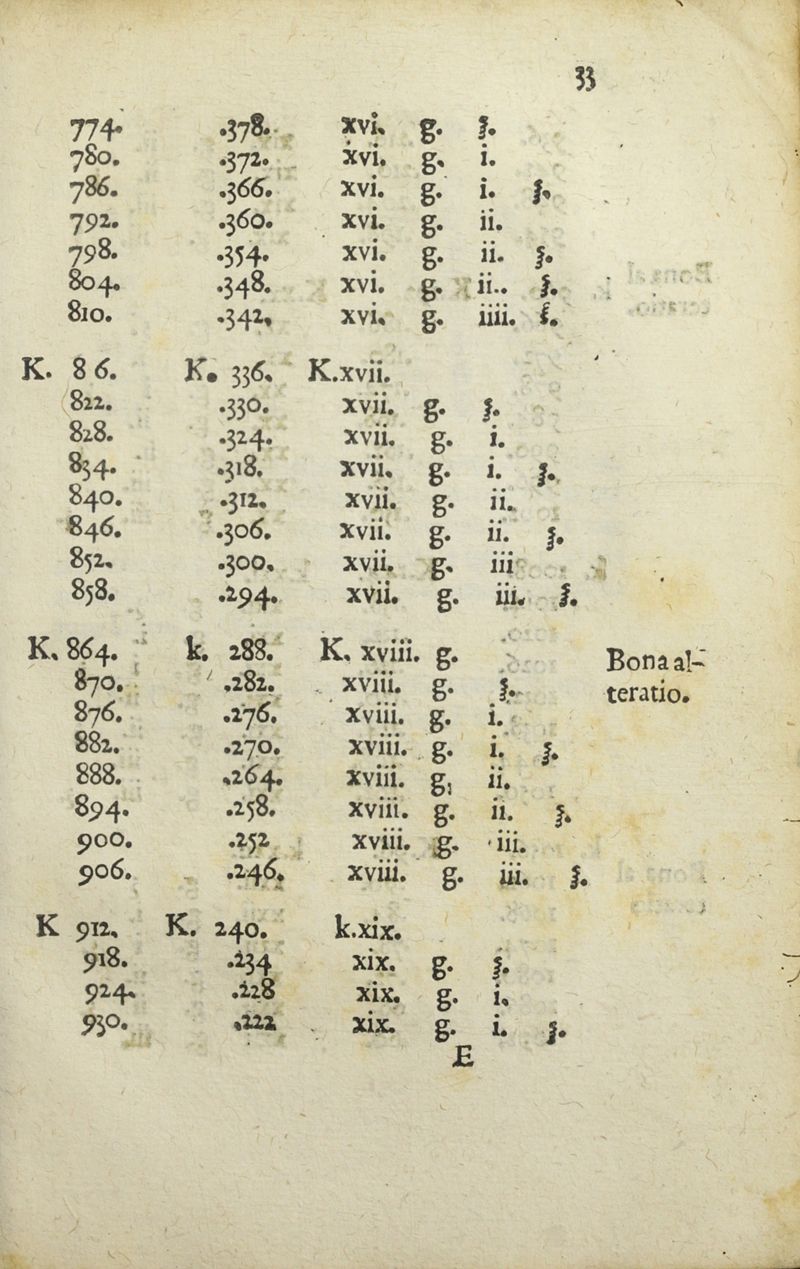 33
774. .378. xvi. g. ʒ.
780. .372. xvi. g. i.
786. .366. xvi. g. i. ʒ.
792. .360. xvi. g. ii.
798. .354. xvi. g. ii. ʒ.
804. .348. xvi. g. ii.. ʒ.
810. .342, xvi. g. iiii. ʒ.
K. 8 6. K. 336. K.xvii.
822. .330. xvii. g. ʒ.
828. .324. xvii. g. i.
834. .318. xvii. g. i. ʒ.
840. .312. xvii. g. ii.
846. .306. xvii. g. ii. ʒ.
852. .300. xvii. g. iii
858. .294. xvii. g. iii. ʒ.
K. 864. k. 288. K. xviii. g.
Bona al-
870. .282. xviii. g. ʒ.
teratio.
876. .276. xviii. g. i.
882. .270. xviii. g. i. ʒ.
888. .264. xviii. g, ii.
894. .258. xviii. g. ii. ʒ.
900. .252 xviii. g. iii.
906. .246. xviii. g. iii. ʒ.
K 912. K. 240. k.xix.
918. .234 xix. g. ʒ.
924. .228 xix. g. i.
930. .222 xix. g. i. ʒ.
E